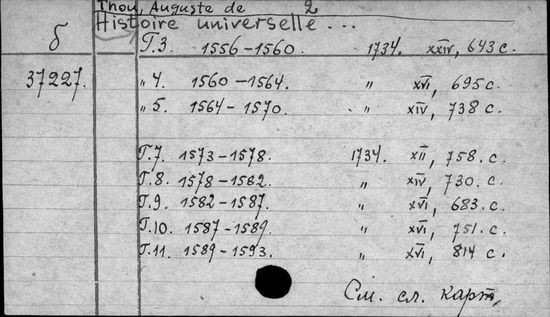 Thou, Auguste de 2
б Histoire universelle ...
Т.3. 1556-1560. 1734. XXIV, 643 с.
37227. „ 4. 1560-1564. „ XVI, 695 с.
„ 5. 1564-1570. „ XIV, 738 с.
Т.7. 1573-1578. 1734. XII, 758. с.
Т.8. 1578-1582. „ XIV, 730. с.
Т.9. 1582-1587. „ XVI, 683. с.
Т.10. 1587-1589. „ XVI, 751. с.
Т.11. 1589-1593. „ XVI, 814 с.
См. сл. карт,